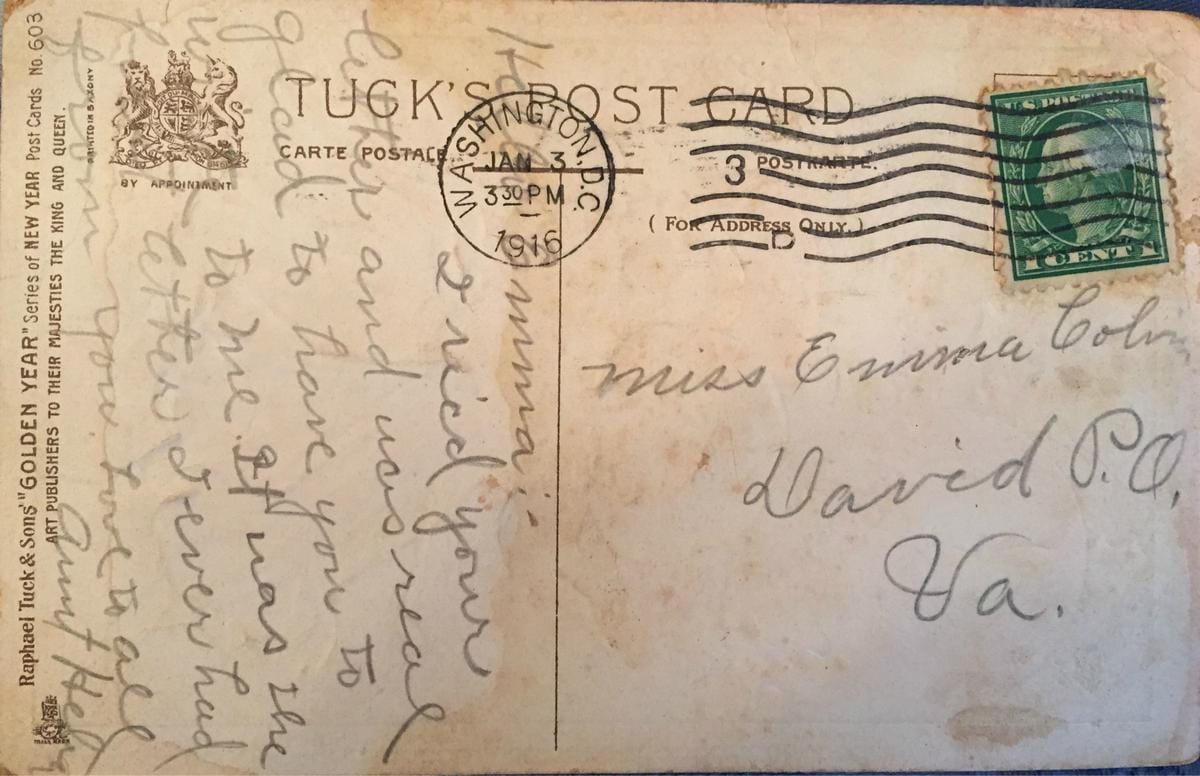 TUCK'S POST CARD
CARTE POSTALE
POSTKARTE.
( FOR ADDRESS ONLY.)
WASHINGTON, D.C.
JAN 3
3 30 PM
1916
3
D
U.S. POSTAGE
1 CENT 1
BY APPOINTMENT
PRINTED IN SAXONY
Raphael Tuck & Sons' "GOLDEN YEAR" Series of NEW YEAR Post Cards No. 603
ART PUBLISHERS TO THEIR MAJESTIES THE KING AND QUEEN.
TRADE MARK
Miss Emma Colvin
David P.O.
Va.
Hello Emma:-
I ricd your
letter and was real
glad to have you to
to me It was the
letter I ever had
from you Love to all
Aunt